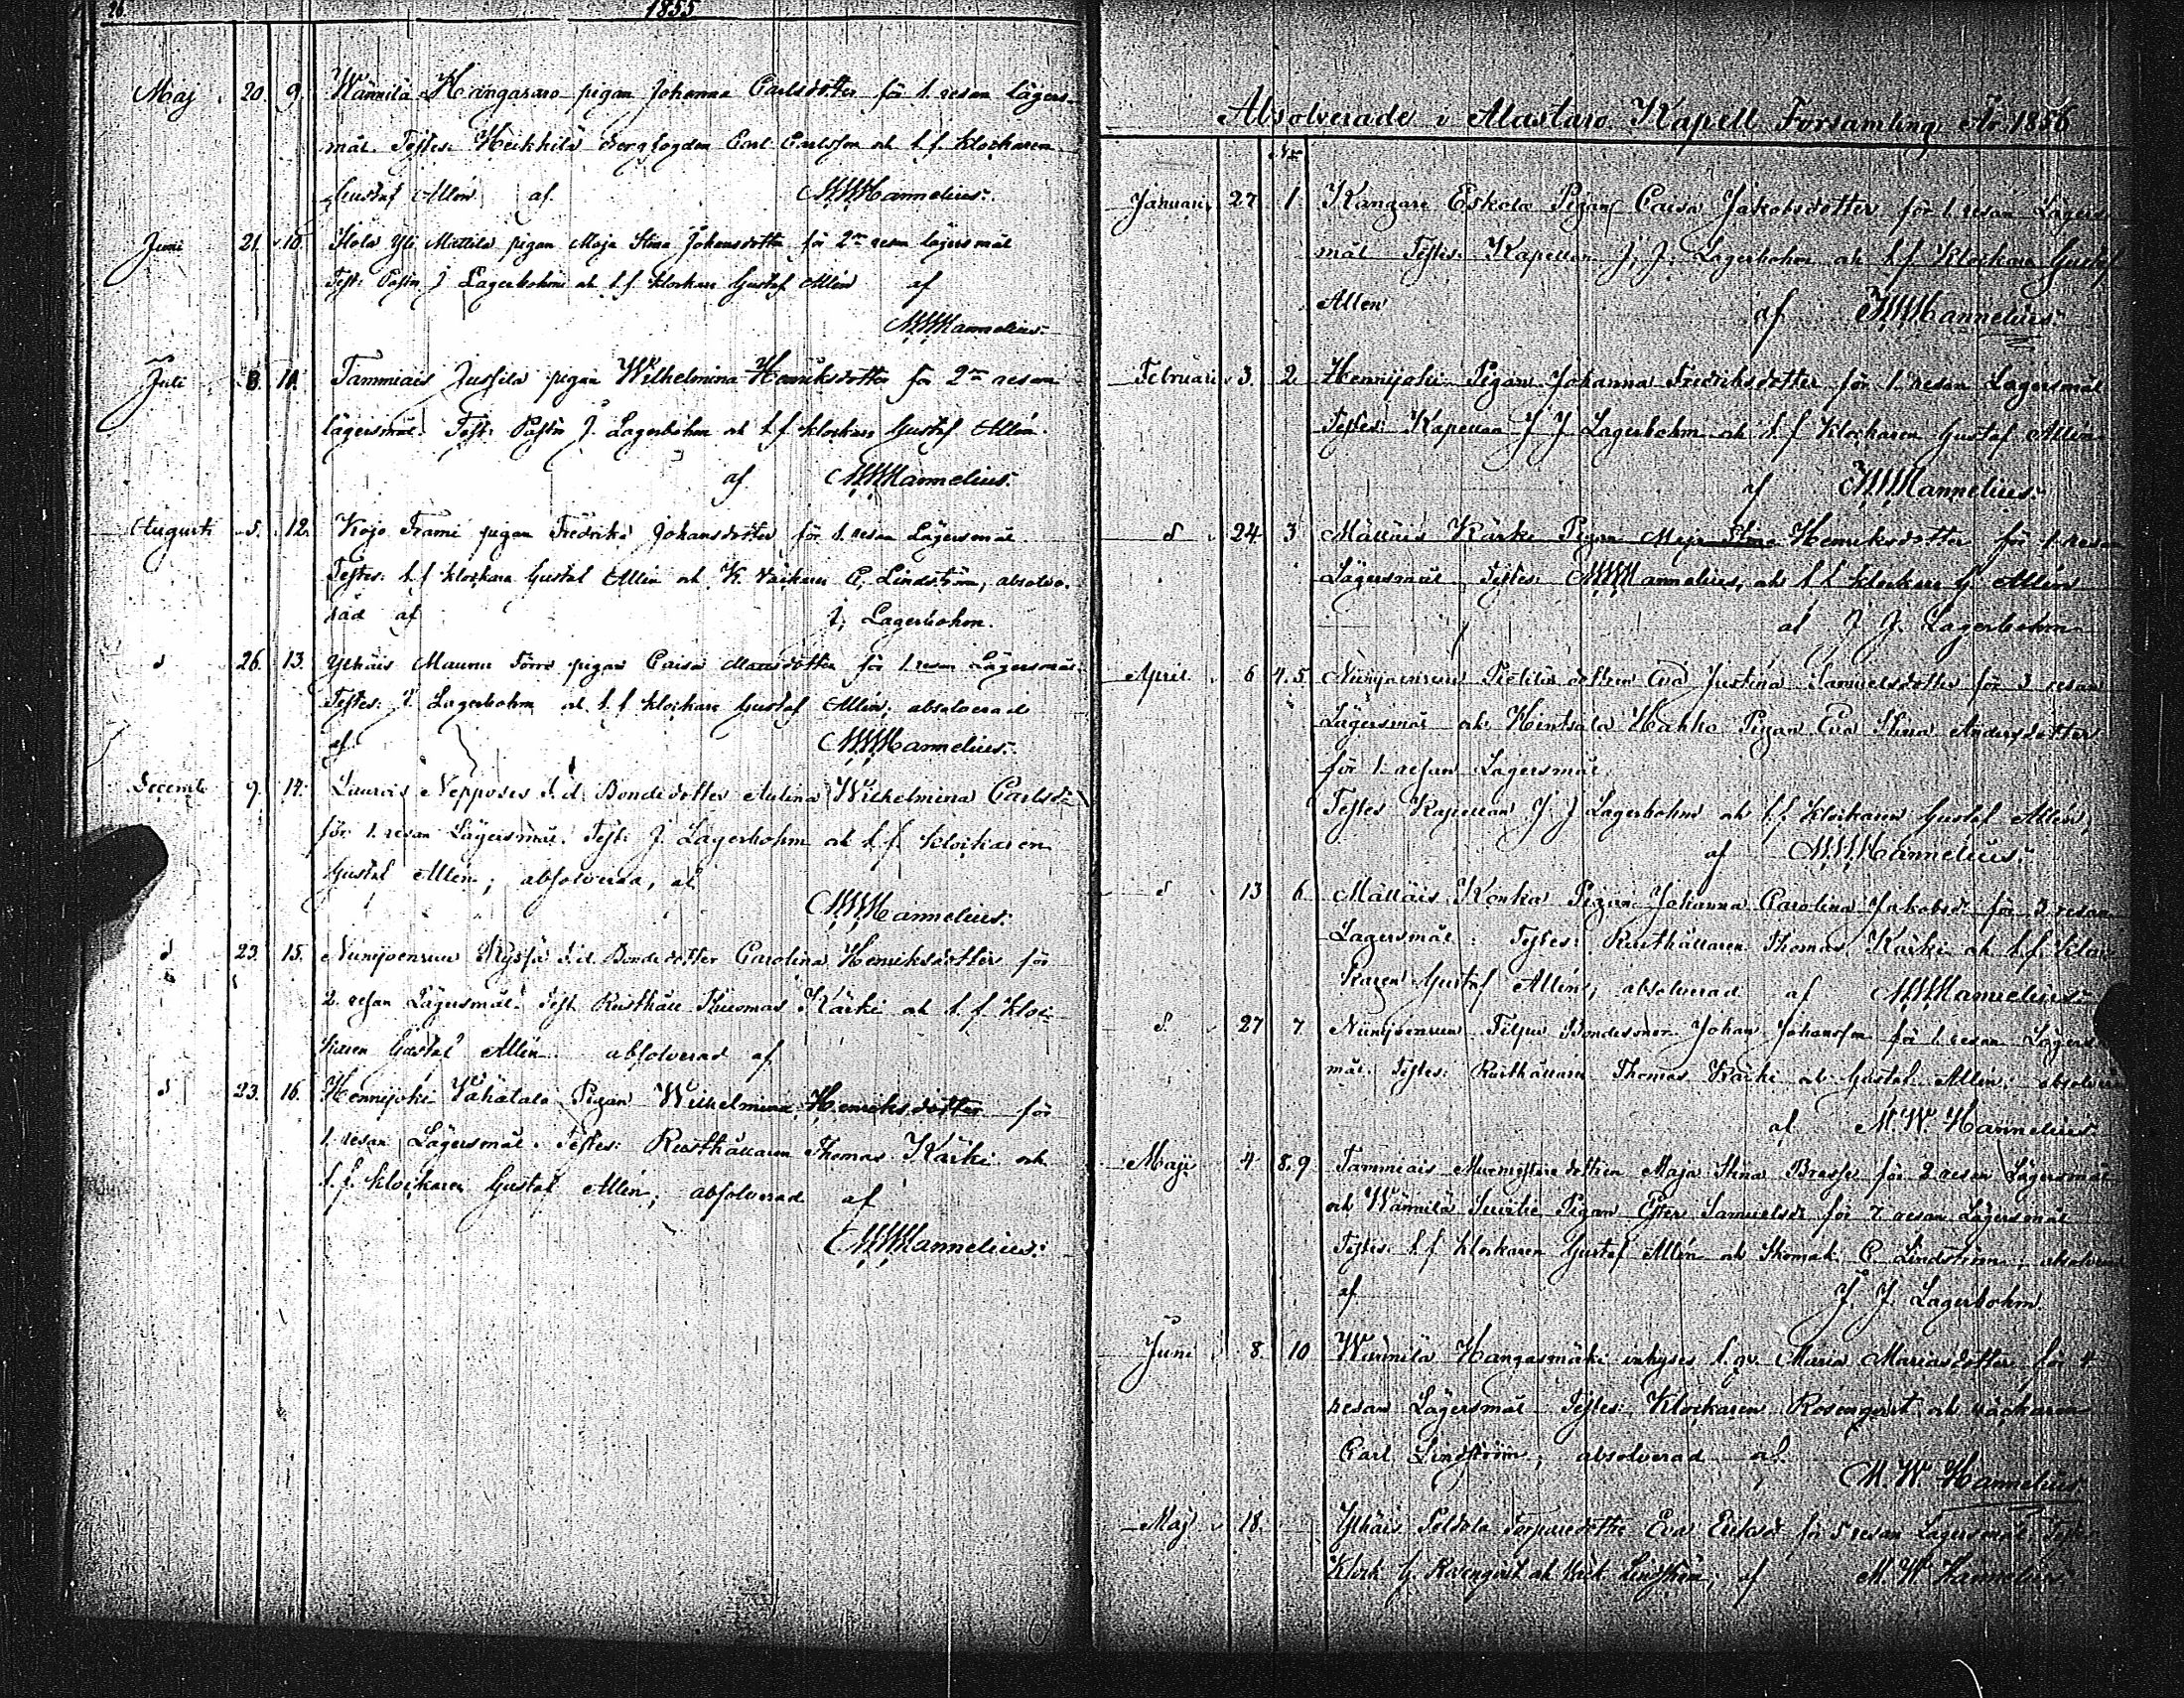 26
1855
Maj 20. 9. Wännilä Kangasaro pigan Johanna Carlsdotter för 1. resan lägers-
mål. Testes: Heikkilä Carl Carlsson och t.f. Klockaren
Gustaf Allén af MWHannelius.
Juni 21. 10. Yli Mattila pigan Maja Stina Johansdotter för 2ra resan lägersmål
Test: Pastor J Lagerbohm och t.f. Klockare Gustaf Allén af
MWHannelius.
Juli 8. 11. Tammiais Jussila pigan Wilhelmina Henriksdotter för 2ra resan
lägersmål. Test: Pastor J. Lagerbohm och t.f. klockare Gustaf Allén.
af MWHannelius.
Augusti 5. 12. Kojo Frami pigan Fredrika Johansdotter för 1. resan Lägersmål
Testes: t.f. klockare Gustaf Allén och K. Väckare C. Lindström, absolve-
rad af J. Lagerbohm.
d 26. 13. Ylhäis Maunu Torro pigan Caisa dotter för 1. resan Lägersmål.
Testes: J. Lagerbohm och t.f. klockare Gustaf Allén; absolverad
af MWHannelius.
Decemb 9. 14. Laurois Nepposes d.d. Bondedotter Wilhelmina Carlsd:
för 1. resan Lägersmål. Test: J. Lagerbohm och t.f. Klockaren
Gustaf Allén; absolverad, af
MWHannelius.
d 23. 15. Niinijoensuu d.d. Bondedotter Carolina Henriksdotter för
2. resan Lägersmål. Test Rusthåll Thomas Kärki och t.f. Kloc-
karen Gustaf Allén absolverad af
d 23. 16. Hennijoki Vähätalo Pigan Wilhelmina Henriksdotter för
1. resan Lägersmål. Testes: Rusthållaren Thomas Kärki och
t.f. Klockaren Gustaf Allén; absolverad af
MWHannelius.
Absolverade i Alastaro Kapell Församling År 1856
No
Januari 27 1 Kangare Eskola Pigan Caisa Jakobsdotter för 1. resan Lägers-
mål Testes: Kapellan J. J. Lagerbohm och t.f Klockare Gustaf
Allén af MWHannelius.
Februari 3. 2 Hennijoki Pigan Johanna Fredriksdotter för 1. resan Lägersmål
Testes: Kapellan J J Lagerbohm och t.f Klockaren Gustaf Allén
af MWHannelius.
d 24 3 Mälläis Kärki Pigan Maja Stina Henriksdotter för 1 resan
Lägersmål Testes: MWHannelius, och t.f klockare G Allén
af J. J. Lagerbohm
April 6 4.5. Niinijoensuu dottren Eva Justina Samuelsdotter för 3 resan
Lägersmål och Hintsala Hakko Pigan Eva Stina Andersdotter
för 1. resan Lägersmål
Testes Kapellan J J Lagerbohm och t.f. Klockaren Gustaf Allén,
af MWHannelius.
d 13 6 Mälläis Konka Pigan Johanna Carolina Jakobsdr för 3 resan
Lägersmål: Testes: Rusthållaren Thomas Kärki och t.f. Kloc-
karen Gustaf Allén; absolverad af MWHannelius.
d. 27 7. Niinijoensuu Tilpu Bondesonen Johan Johansson för 1 resan Lägers-
mål. Testes: Rusthållaren Thomas Kärki och Gustaf Allén; absolverad
af M. W. Hannelius.
Maji 4 8.9 Tammiais dottren Maja Stina för 2 resan Lägersmål
och Wännilä Pigan Ester Samuelsdr för 2. resan Lägersmål
Testes: t.f Klockaren Gustaf Allén och C. Lindström; absolverad
af J. J. Lagerbohm.
Juni 8. 10 Wännilä Kangasmäki inhyses Maria Mariasdotter för 4
resan Lägersmål Testes: Klockaren Rosenqvist och väckaren
Carl Lindström; absolverad af.
M. W. Hannelius.
Maj 18. Ylhäis Torparedottr Eva för 5 resan Lägersmål Testes
Klock G. Rosenqvist och Väck Lindström; af M. W Hannelius.